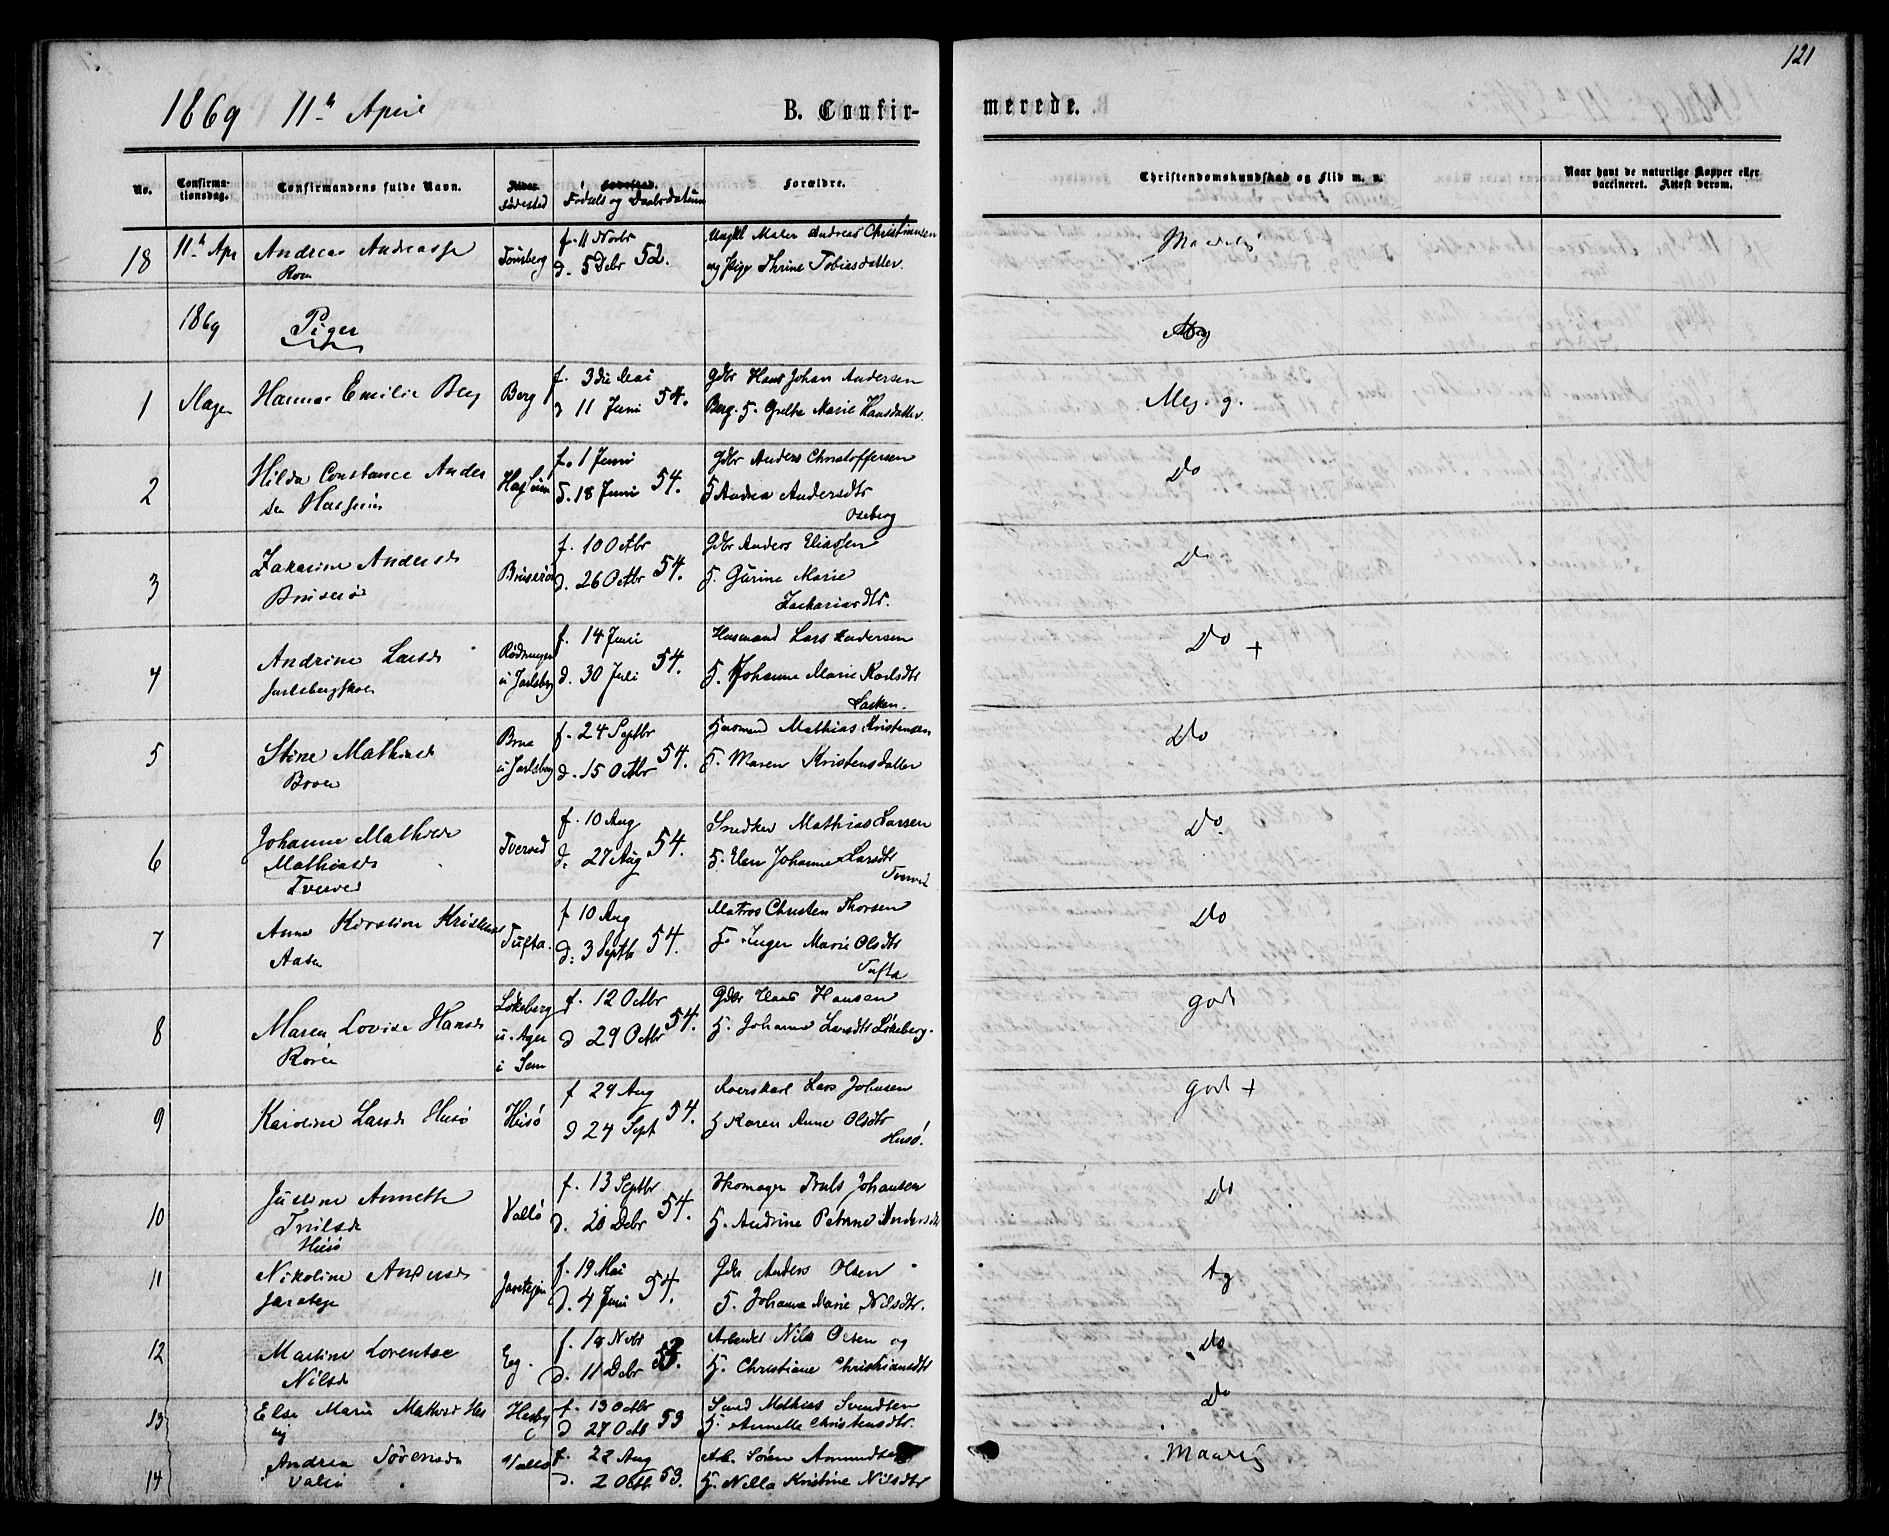 121
1869 11te April B. Confir- merede.
No. Confirma-tionsdag. Confirmandens fulde Navn. Fødested Fødsels og Daabsdatum Forældre. Christendomskundskab og Flid m. v. Naar havt de naturlige Kopper eller vaccineret. Attest derom.
18 11te Apr Andreas Tønsberg f. 11 Novbr 52. Maler Andreas Christiansen
d. 5 Debr og Pige Thrine Tobiasdatter.
1869 Piger
1 Slagen Hanna Emilie Berg Berg f. 3die Mai 54. Gdbr Hans Johan Andersen Meg. g.
d 11 Juni Berg. H. Grethe Marie Hansdatter.
2 Hilda Constance Ander f. 1 Juni 54. Gdbr Anders Christoffersen Do
sen D. 18 Juni H Andrea Andersdtr
Oseberg
3 Zakarine Andersd f. 10 Octbr 54. Gdbr Anders Eliassen Do
Bruserød d. 26 Octbr H. Gurine Marie
Zachariasdtr.
4 Andrine Larsd f. 14 Juni 54. Husmand Lars Andersen Do +
u Jarlsberg d. 30 Juli H. Johanne Marie Karlsdtr
5 Stine Mathiasd f. 24 Septbr 54. Husmand Mathias Kristensen Do
u Jarlsberg d. 15 Octbr H. Maren Kristensdatter
6 Johanne Mathilde Tverved f. 10 Aug 54. Snedker Mathias Larsen Do.
Mathiasd d. 27 Aug H. Elen Johanne Larsdtr
Tverved Tverved
7 Anne Kirstine Kristensd Tufta. f 10 Aug 54. Matros Christen Thorsen Do
Aasen d. 3 Septb H. Inger Marie Olsdtr
Tufta
8 Maren Lovise Hansd Løkeberg f. 12 Octbr 54. Gdbr Hans Hansen god
u. Ager d 29 Octbr H. Johanne Larsdtr Løkeberg.
i Sem
9 Karoline Larsd Husø Husø f 29 Aug 54. Lars Johnsen god +
d 24 Sept H Karen Anne Olsdtr
Husø.
10 Justine Annette Vallø f. 13 Septbr 54. Skomager Truls Johansen Do
Trulsd d. 20 Debr H. Andrine Petrine Andersdtr
Husø
11 Nikoline Andersd f. 19 Mai 54. Gdbr Anders Olsen tg
d. 4 Juni H. Johanne Marie Nilsdtr.
12 Martine Lorentse Eeg. f. 18 Novbr 53. Arbeider Nils Olsen og Do
Nilsd d. 11 Debr H. Christiane Christiansdtr
13 Else Marie Mathisd Hes Hesby f. 13 Octbr 53 Mathias Svendsen Do
by d 27 Octb H. Annette Christensdtr.
14 Andrea Sørensd Vallø f. 22 Aug 53. Arb. Søren Amundsen Maadelig
Vallø d. 2 Octb H. Nella Kristine Nilsdtr